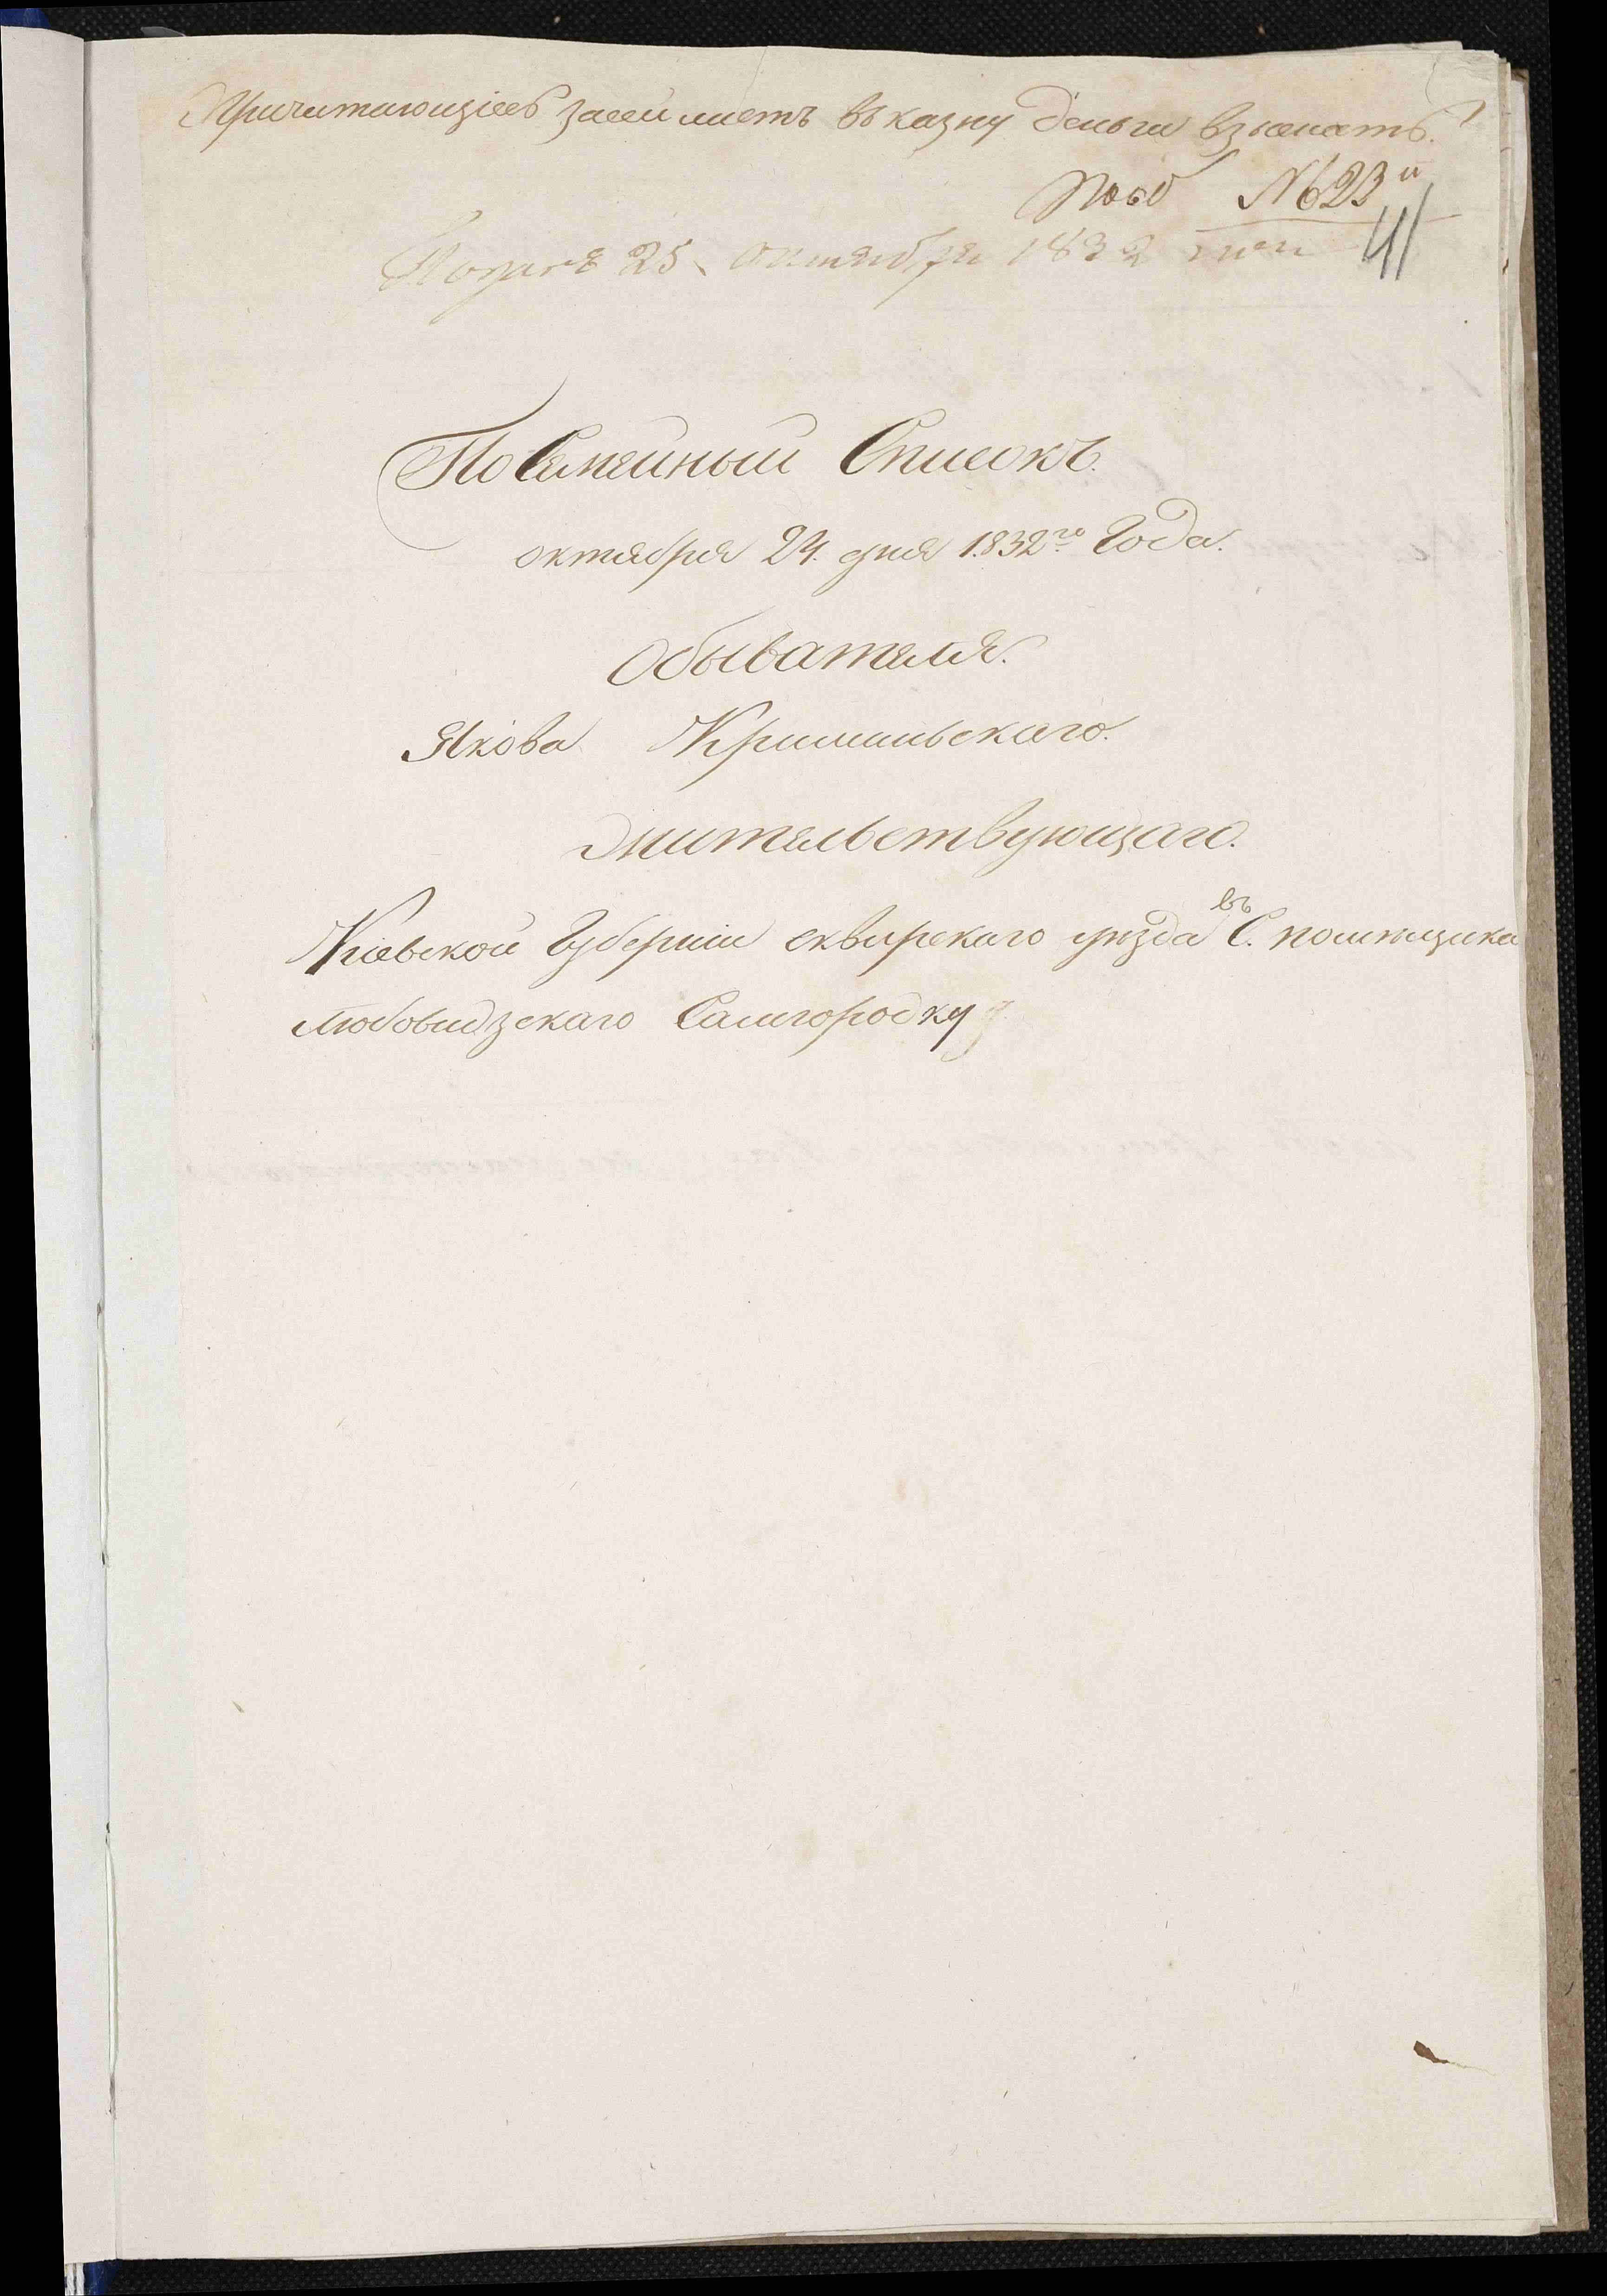 Причитающіеся засей листъ въ казну деньги взыскать.
№ 23й
41
Подано 25. октября 1832 года
По Семейный Списокъ.
октября 24. дня 1832го Года.
Обывателя.
Якова Кришинскаго.
Жительствующаго.
Кіевской Губерніи сквирскаго уѣзда въ С. помѣщика
Любовидзскаго Самгородку